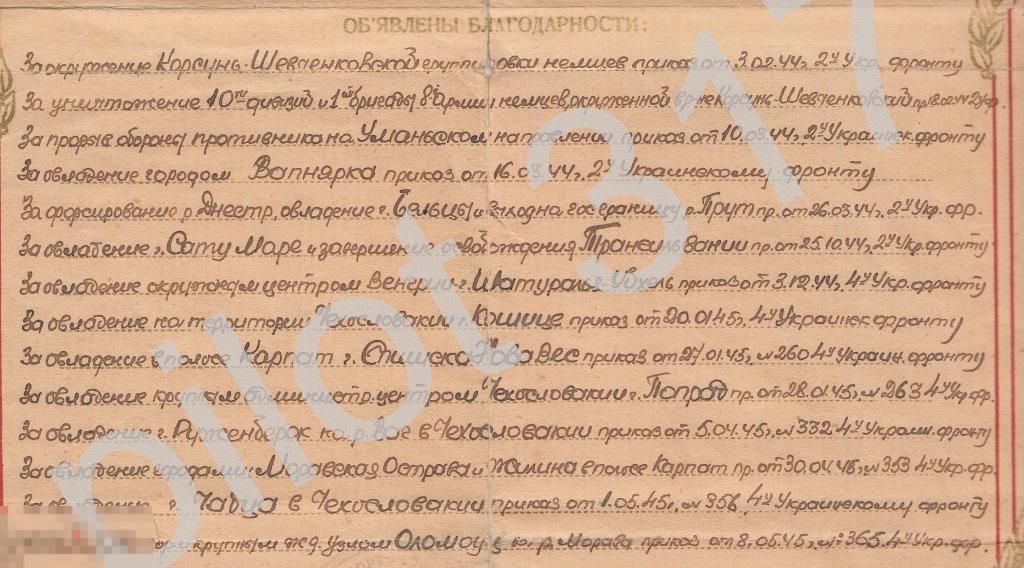 ОБ'ЯВЛЕНЫ БЛАГОДАРНОСТИ:
За окружение Корсунь-Шевченковской группировки немцев приказ от 3.02.44г, 2му Укр. фронту
За уничтожение 10ти дивизий и 1ой бригады 8й Армии немцев, окруженной в р-не Корсунь-Шевченковский пр. 18.02.44 2 Укр.
За прорыв обороны противника на Уманьском направлении приказ от 10.03.44г, 2му Украинск. фронту
За овладение городом Вапнярка приказ от 16.03.44г, 2му Украинскому фронту
За форсирование р. Днестр, овладение г. Бельцы и выход на гос границу р. Прут пр. от 26.03.44г, 2му Укр. фр.
За овладение г. Сату Маре и завершение освобождения Трансильвании пр. от 25.10.44г, 2му Укр. фронту
За овладение окружным центром Венгрии г. Шатуралья-Уйхель приказ от 3.12.44, 4му Укр. фронту
За овладение на территории Чехословакии г. Кошице приказ от 20.01.45г, 4му Украинск фронту
За овладение в полосе Карпат г. Спишска Нова Вес приказ от 27.01.45г, № 260 4му Украин. фронту
За овладение крупным администр. центром Чехословакии г. Попрад пр. от 28.01.45г, № 263 4му Укр. фр.
За овладение г. Ружемберок на р. Ваг в Чехословакии приказ от 5.04.45г, № 332 4му Украин. фронту
За овладение городами: Моравска Острава и Жилина в полосе Карпат пр. от 30.04.45г, № 353 4му Укр. фр.
г. Чадца в Чехословакии приказ от 1.05.45г, № 356 4му Украинскому фронту
крупным ж.д. узлом Оломоуц на р. Морава приказ от 8.05.45г, № 365 4му Укр. фр.
pilot 317